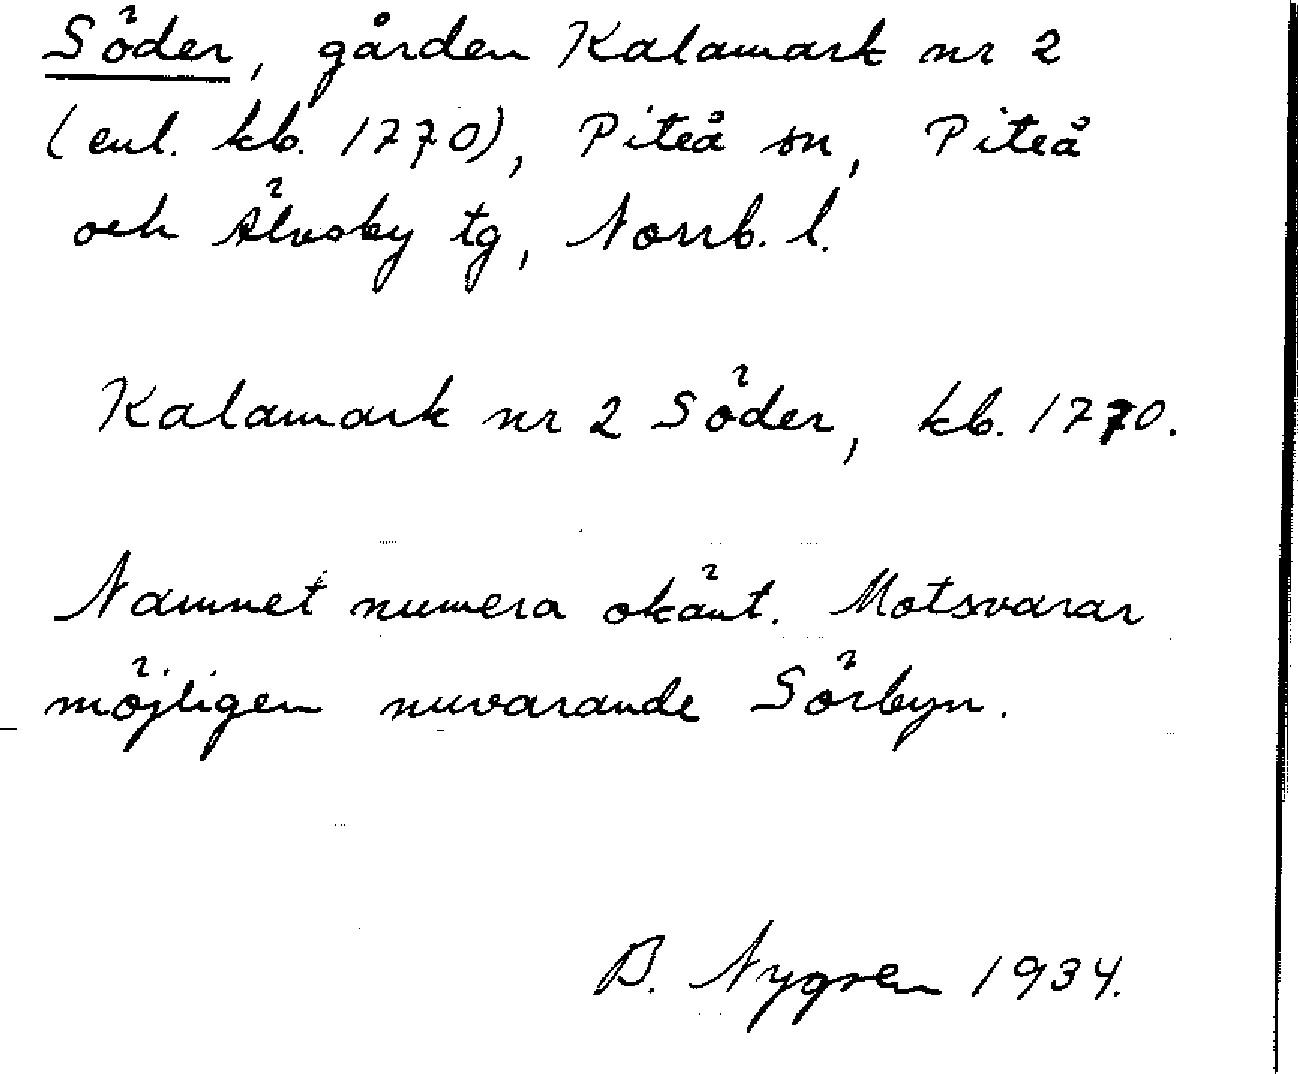 Söder, gården Kalamark nr 2
(enl. kb. 1770), Piteå sn, Piteå
och Älvsby tg, Norrb. l.
Kalamark nr 2 Söder, kb. 1770.
Namnet numera okänt. Motsvarar
möjligen nuvarande Sörbyn.
B. Nygren 1934.